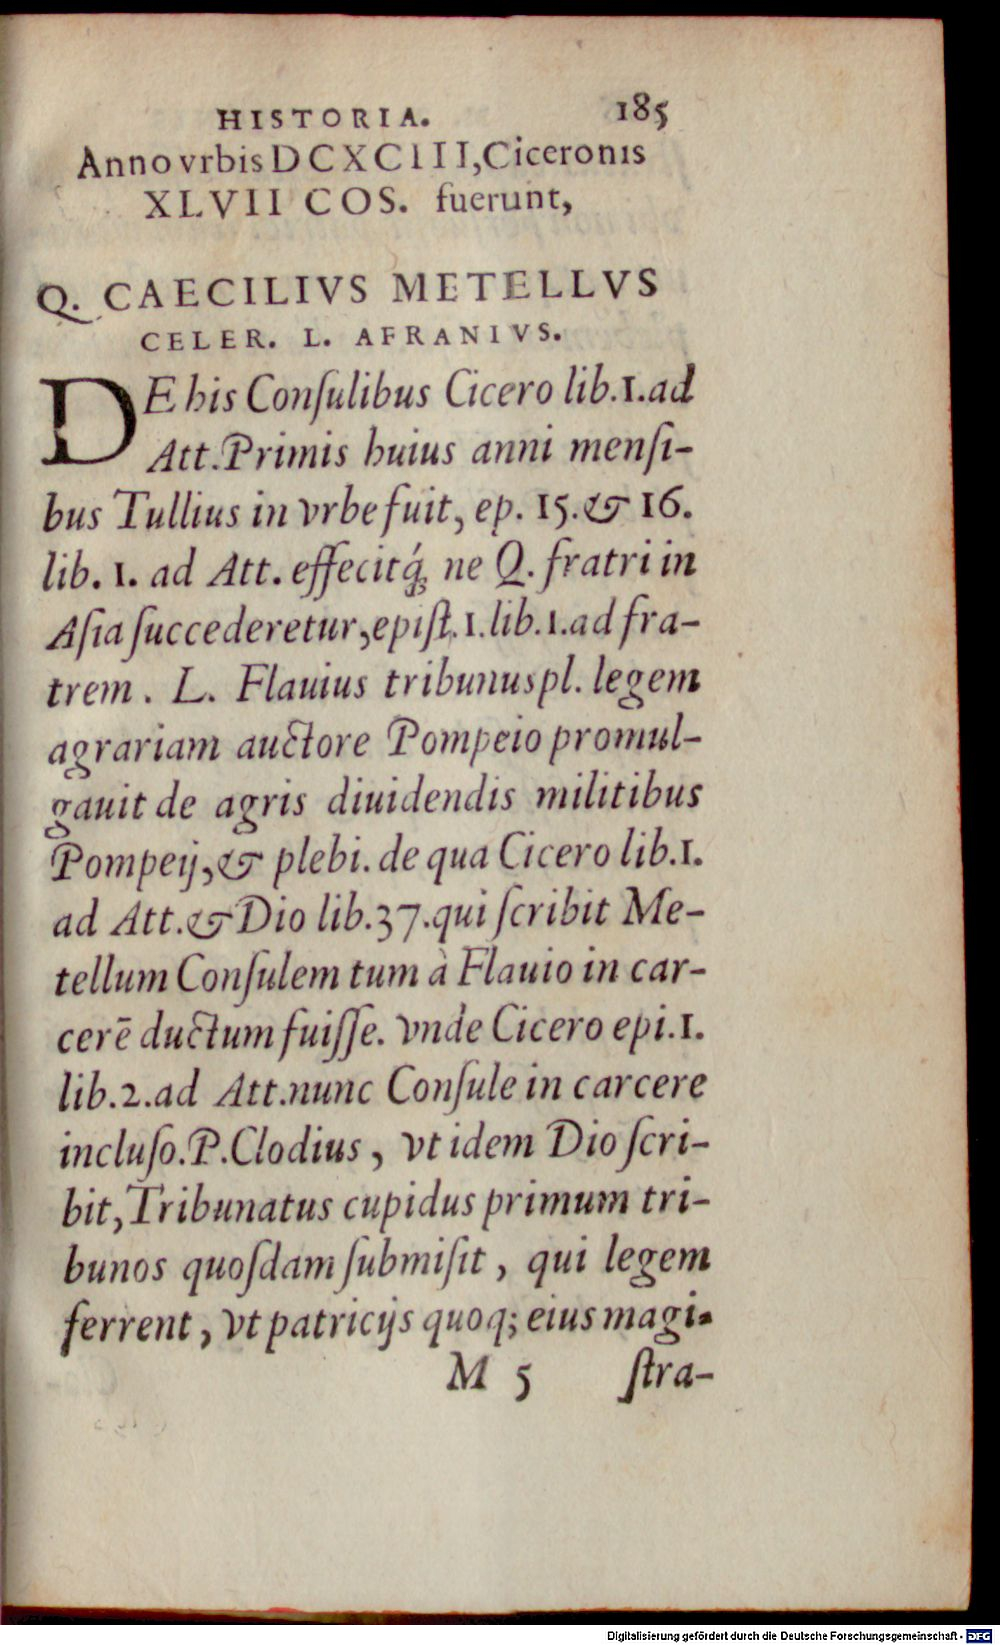 HISTORIA. 185
Anno vrbis DCXCIII, Ciceronis
XLVII COS. fuerunt,
Q. CAECILIVS METELLVS
CELER. L. AFRANIVS.
DE his Conſulibus Cicero lib.1.ad
Att.Primis huius anni menſi-
bus Tullius in vrbe fuit, ep. 15.& 16.
lib. 1. ad Att. effecitq́ꝫ ne Q. fratri in
Aſia ſuccederetur,epiſt.1.lib.1.ad fra-
trem . L. Flauius tribunus pl. legem
agrariam auctore Pompeio promul-
gauit de agris diuidendis militibus
Pompeij,& plebi. de qua Cicero lib.1.
ad Att.& Dio lib.37.qui ſcribit Me-
tellum Conſulem tum à Flauio in car-
cerē ductum fuiſſe. vnde Cicero epi.1.
lib.2.ad Att.nunc Conſule in carcere
incluſo.P.Clodius , vt idem Dio ſcri-
bit,Tribunatus cupidus primum tri-
bunos quoſdam ſubmiſit , qui legem
ferrent , vt patricijs quoq; eius magi-
M 5 ſtra-
Digitalisierung gefördert durch die Deutsche Forschungsgemeinschaft - DFG